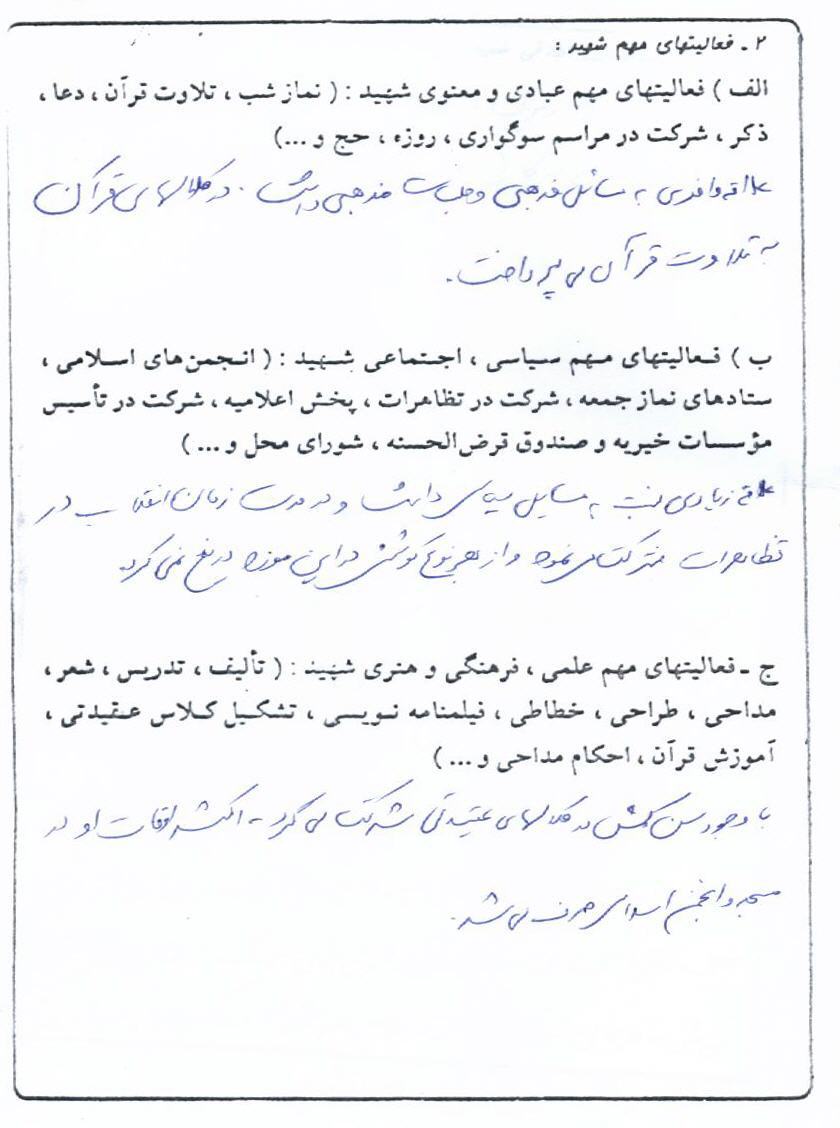 ۲ ـ فعالیتهای مهم شهید :
الف ) فعالیتهای مهم عبادی و معنوی شهید : ( نماز شب ، تلاوت قرآن ، دعا ،
ذکر ، شرکت در مراسم سوگواری ، روزه ، حج و ...)
علاقه وافری به مسائل مذهبی و جلسات مذهبی داشت . در کلاسهای قرآن
به تلاوت قرآن می پرداخت .
ب ) فعالیتهای مهم سیاسی ، اجتماعی شهید : ( انجمن‌های اسلامی ،
ستادهای نماز جمعه ، شرکت در تظاهرات ، پخش اعلامیه ، شرکت در تأسیس
مؤسسات خیریه و صندوق قرض‌الحسنه ، شورای محل و ... )
علاقه زیادی نسبت به مسایل سیاسی داشت و در مدت زمان انقلاب در
تظاهرات شرکت می نمود و از هر نوع کوششی در این مورد دریغ نمی کرد.
ج ـ فعالیتهای مهم علمی ، فرهنگی و هنری شهید : ( تألیف ، تدریس ، شعر ،
مداحی ، طراحی ، خطاطی ، فیلمنامه نویسی ، تشکیل کلاس عقیدتی ،
آموزش قرآن ، احکام مداحی و ... )
با وجود سن کمش در کلاسهای عقیدتی شرکت می کرد - اکثر اوقات او در
مسجد و انجمن اسلامی صرف می شد .